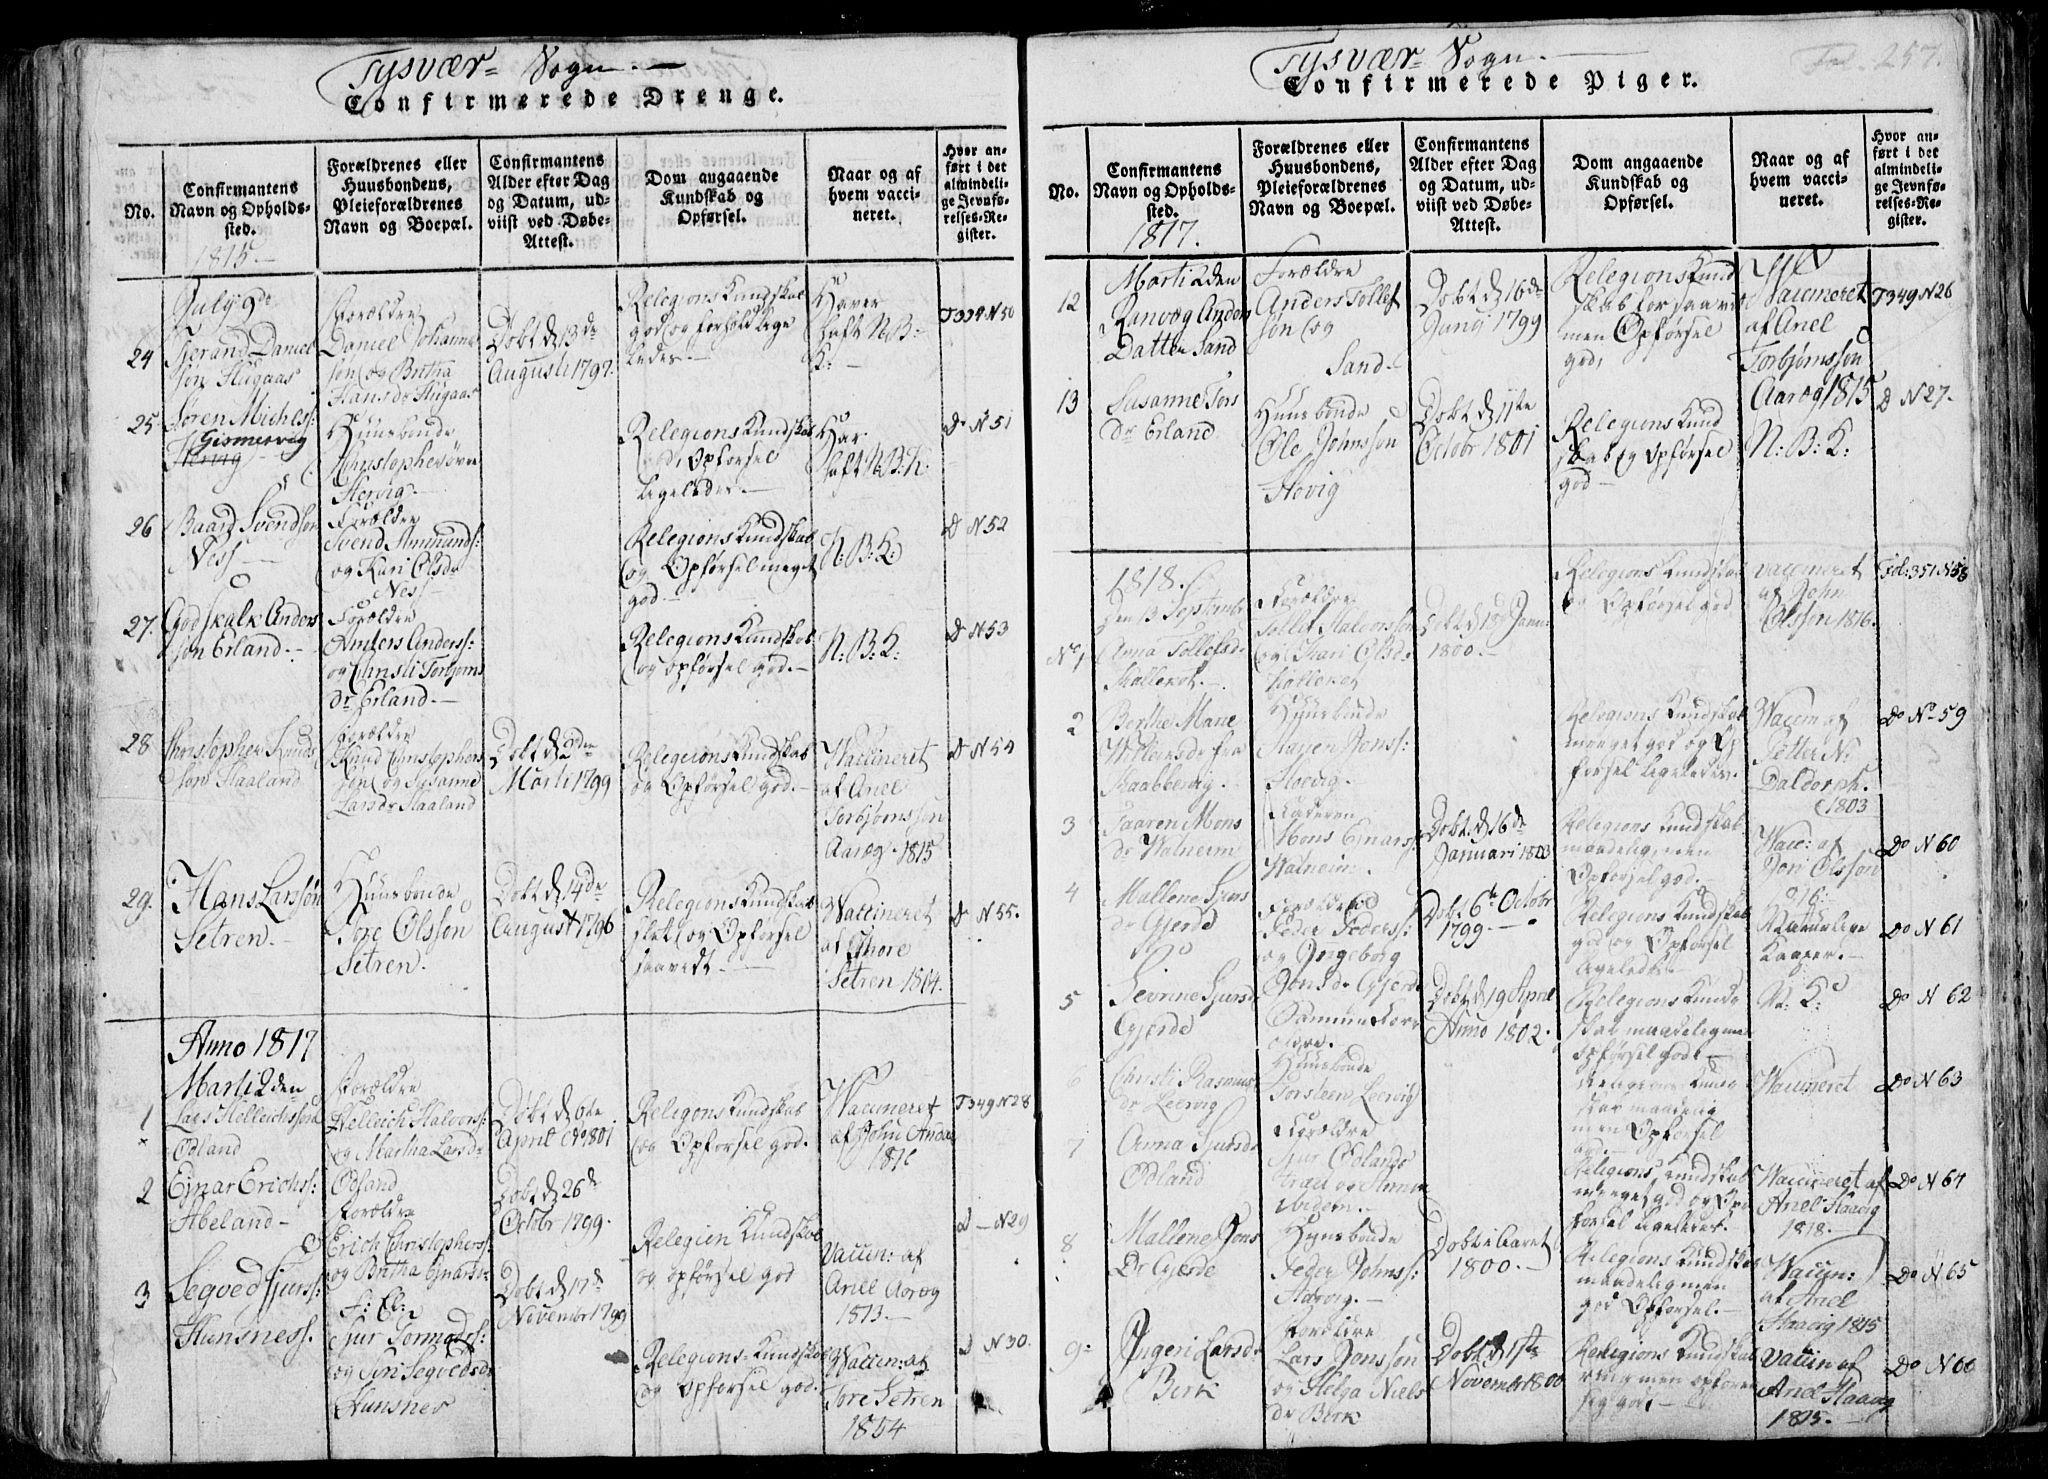 Tysvær Sogn. —
Confirmerede Drenge.
No.
Confirmantens
Navn og Opholds-
sted.
1815. —
Forældrenes eller
Huusbondens,
Pleieforældrenes
Navn og Boepæl.
Confirmantens
Alder efter Dag
og Datum, ud-
viist ved Døbe-
Attest.
Dom angaaende
Kundskab og
Opførsel.
Naar og af
hvem vacci-
neret.
Hvor an-
ført i det
almindeli-
ge Jevnfø-
relses-Re-
gister.
July 9de
24
Daniel
søn
Forældre
Daniel Johannes
søn og Britha
Hansdr
Døbt d 13de
Augusti 1797.
Relegions Kundskab
god og forhold lige
ledes. —
Haver
haft N: B:
K: —
F 334 N 50
25
Søren Michelss:
Gismervig
Huusbonde
Christopher øvre
Hervig. —
Relegions Kundskab
god, Opførsel
ligeledes. —
Har
haft N: B: K:
Do N 51
26
Baard Svendsøn
Ness —
Forældre
Svend Amunds:
og Kari Olsdr
Ness —
Relegions Kundskab
og Opførsel meget
god. —
N: B: K:
Do N 52
27.
Godskalk Anders
søn Erland. —
Forældre
Anders Anderss:
og Christi Torbjørns
dr Erland. —
Relegions Kundskab
og opførsel god. —
N: B: K:
Do N 53
28
Christopher Knuds
søn Haaland
Forældre
Knud Christophers
søn og Susanne
Larsdr Haaland
Døbt d 2den
Marti 1799
Relegions Kundskab
og Opførsel god. —
Vaccineret
af Ariel
Torbjørnssøn
Aarøg 1815
Do N 54
29.
Hans Larssøn
Setren. —
Huusbonde
Tore Olssøn
Setren.
Døbt d 14de
August 1796
Relegions Kundskab
slet og Opførsel
saavidt. —
Vaccineret
af Thore
Setren 1814.
Do N 55.
Anno 1817
Marti 2den
1
×
Lars Helleichssøn
Ødland
Forældre
Helleich Halvors:
og Martha Larsdr
Ødland
Døbt d 6te
April Ao 1801
Relegions Kundskab
og Opførsel god. —
Vaccineret
af John
1816
F 349 N 28
2
Ejnar Erichs:
Abeland —
Forældre
Erich Christophers:
og Britha Ejnarsdr
Døbt d 26de
Octobr 1799.
Relegion Kundskab
og opførsel god
Vaccin: af
Ariel Aarøg
1813. —
d — N 29
3
Segved Sjurs:
Hunsness.
F: El:
Sjur Tormods:
og Siri Segvedsdr
Hunsnes
Døbt d 17de
Novembr 1799
Relegions-Kundskab
og Opførsel god.
Vaccin: af
Tore Setren
1854
d N 30.
Tysvær Sogn. —
Confirmerede Piger.
Fol. 257.
No.
Confirmantens
Navn og Opholds-
sted.
1817.
Forældrenes eller
Huusbondens,
Pleieforældrenes
Navn og Boepæl.
Confirmantens
Alder efter Dag
og Datum, ud-
viist ved Døbe-
Attest.
Dom angaaende
Kundskab og
Opførsel.
Naar og af
hvem vacci-
neret.
Hvor an-
ført i det
almindeli-
ge Jevnfø-
relses-Re-
gister.
12
Marti 2den
Ranvøg Anders
Datter Sand
Forældre
Anders Tollef
søn og
Sand —
Døbt d 16de
Junij 1799
Relegions Kund
skab forsaavidt
men Opførsel
god,
Vaccineret
af Ariel
Torbjørnssøn
Aarøg 1815
F 349 N 26
13
Susanne Tors
Dr Erland
Huusbonde
Ole Johnssøn
Høvig
Døbt d 11te
Octobr 1801
Relegions Kund
skab og Opførsel
god —
N: B: K:
Do N 27.
1818.
Den 13 Septembr
No 1
Anna Tollefsdr
Forældre
Tollef Halvorssøn
og Kari Olsdr
Døbt d Janu:
1800. —
Relegions Kundskab
og Opførsel god
vaccineret
af John
Olssøn 1816.
Fol: 351 N 58
2
Berthe Marie
Huusbonde
Relegions Kundskab
meeget god og Op
førsel ligeledes.
Vaccin af
Petter N:
Daldorph.
1803
Do No 59
3
Taaren Mons
dr Watneim
Faderen
Mons Ejnars:
Watneim.
Døbt d 16de
Januari 1803
Relegions Kundskab
maadelig, men
Opførsel god. —
Vacc: af
Jon Olssøn
816.
Do N 60
4
Mallene Sjurs
dr Gjerde
Forældre
Peder Peders:
og Ingeborg
Jonsdr Gjerde
Døbt 6te Octobr
1799. —
Relegions Kundskab
god og Opførsel
ligeledes —
Naturlige
Kaaper. —
Do N 61
5
Sevrine Sjursdr
Gjerde
Samme
Døbt d 19 April
Anno 1802.
Relegions Kund
skab maadelig men
Opførsel god. —
N: K:
Do N 62
6
Christi Rasmus
dr Leervig
Huusbonde
Torsteen Leervig
Relegions Kund
skab maadelig
men Opførsel
god. —
Vaccineret
Do N 63
7
Anna Sjursdr
Ødland
Forældre
Sjur Ødland
ibidem. —
Relegions Kundskab
meeget god og Op
førsel ligeledes. —
Vaccineret af
Ariel Haavig
1818. —
Do N 64
8
Mallene Jons
Dr Gjerde
Huusbonde
Peder Johns:
Haavig. —
Døbt i Aaret
1800. —
Relegions Kundskab
maadelig men
god Opførsel. —
Vaccin:
af Ariel
Haavig 1815
Do N 65
9
Ingeri Larsdr
Berk
Forældre
Lars Jonssøn
og Helga Niels
dr Berk
Døbt d 1ste
Novembr 1800
Relegions Kundskab
ring men opfører
sig godt —
Vaccin af
Ariel Haavig
1815. —
Do N 66